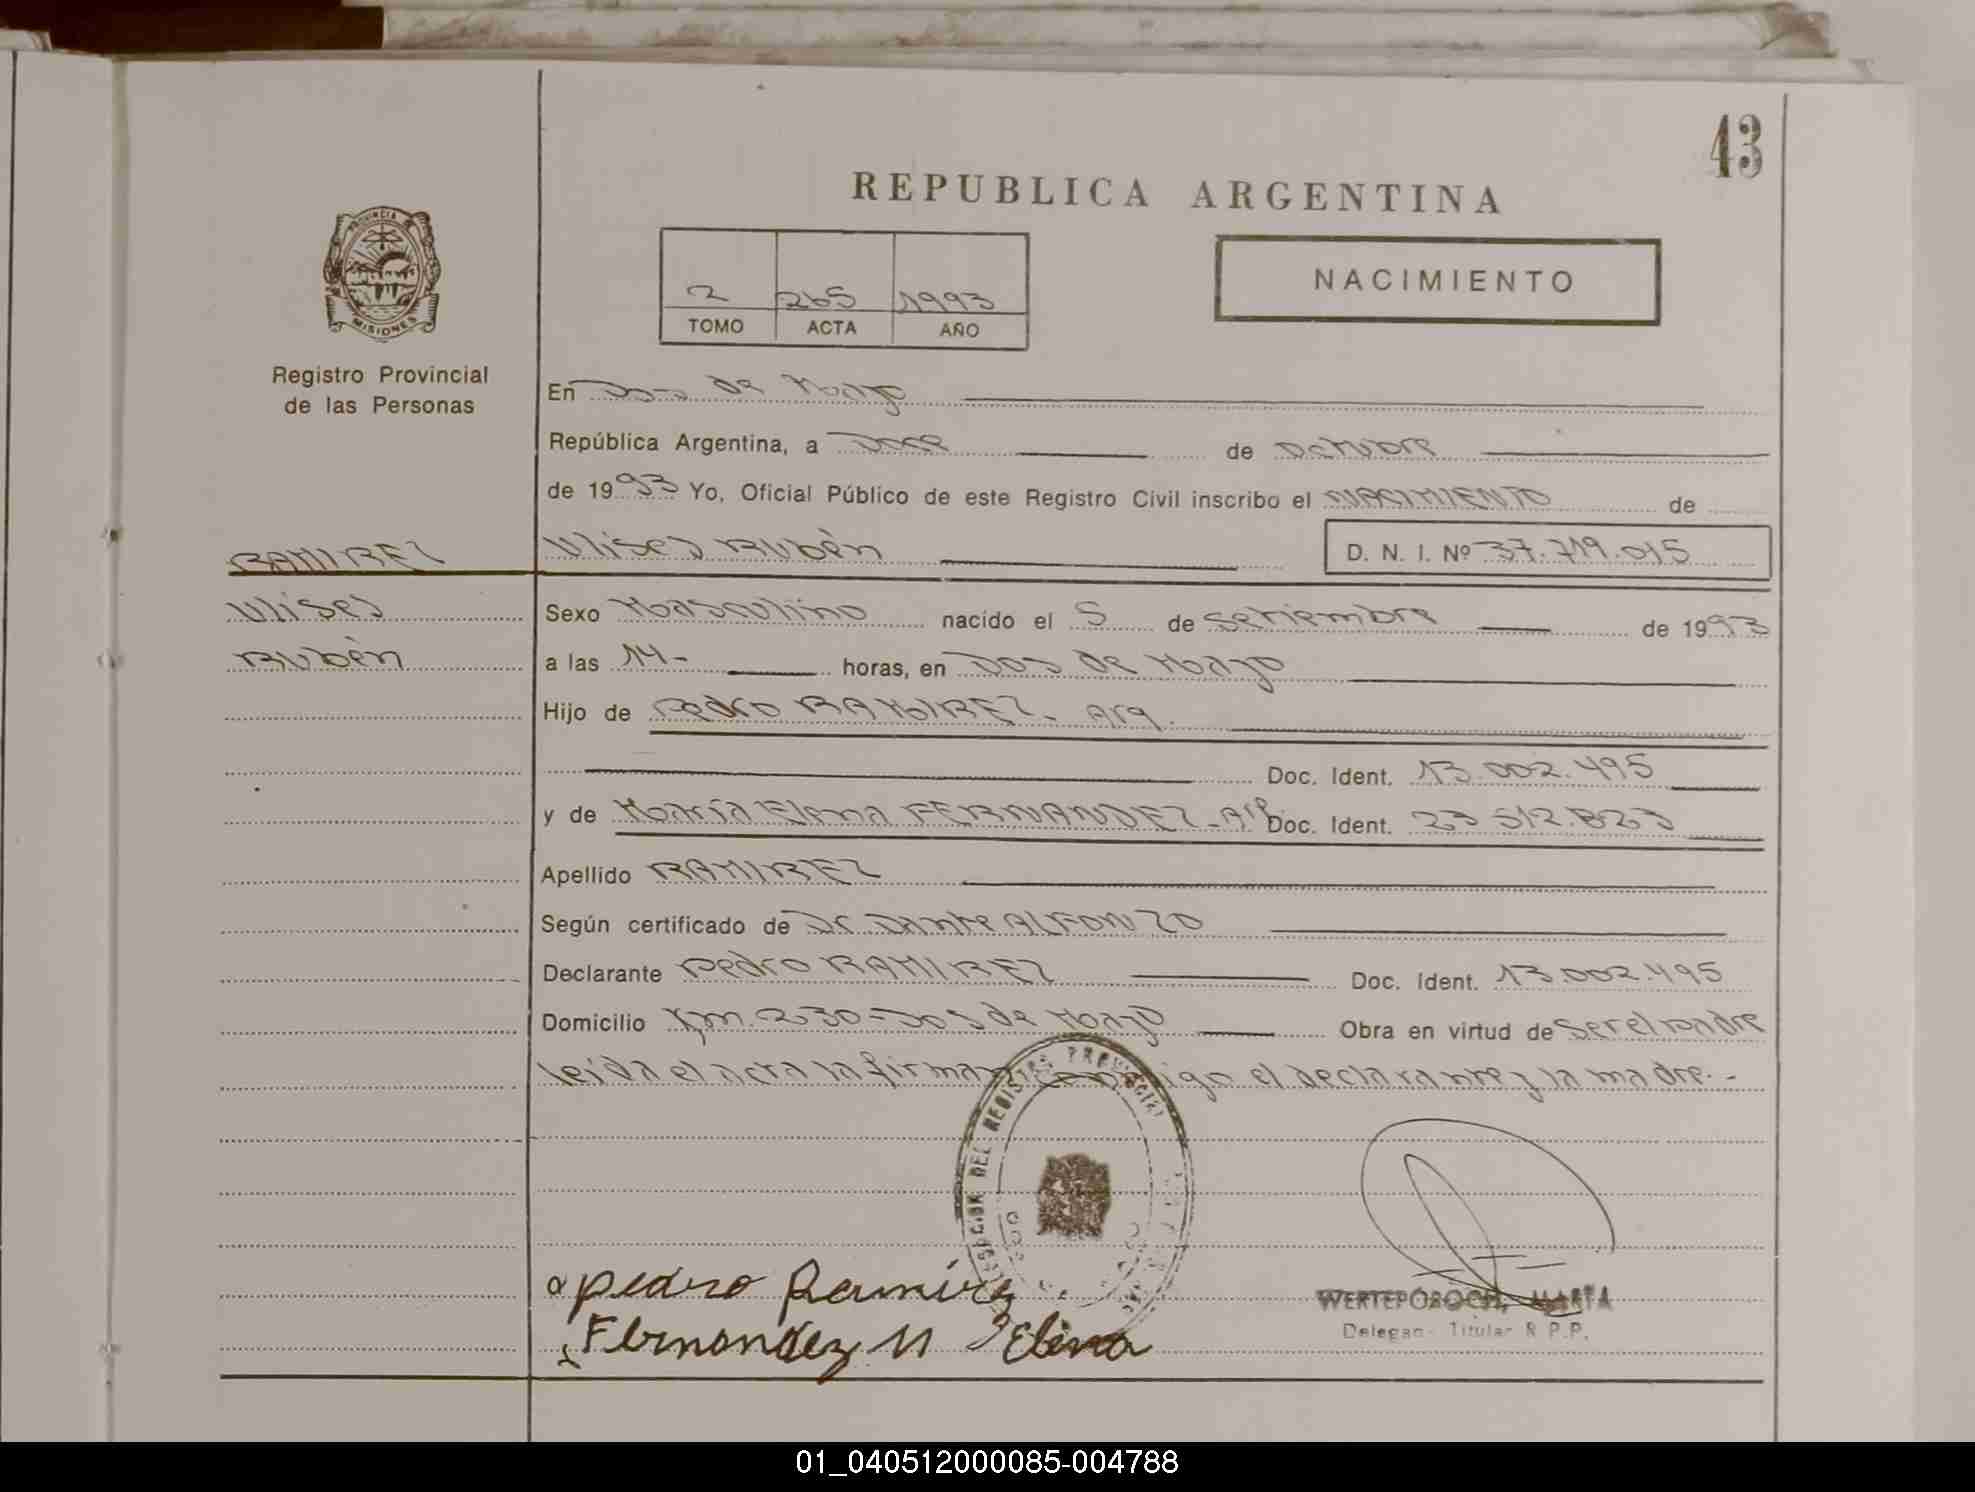 43
REPUBLICA ARGENTINA
PROVINCIA
MISIONES
Registro Provincial
de las Personas
2 265 1993
TOMO ACTA AÑO
NACIMIENTO
En Dos de Mayo
República Argentina, a Doce de octubre
de 1993 Yo, Oficial Público de este Registro Civil inscribo el NACIMIENTO de
RAMIREZ Ulises Rubèn D. N. I. Nº 37.719.015
Ulises Sexo Masculino nacido el 5 de setiembre de 1993
Rubèn a las 14- horas, en Dos de Mayo
Hijo de Pedro RAMIREZ- Arg.
Doc. Ident. 13.002.495
y de María Elena FERNANDEZ-Arg. Doc. Ident. 23.512.823
Apellido RAMIREZ
Según certificado de Dr. Dante ALFONZO
Declarante Pedro RAMIREZ Doc. Ident. 13.002.495
Domicilio Km. 230-Dos de Mayo Obra en virtud de ser el padre
leída el acta la firman conmigo el declarante y la madre.-
DEL REGISTRO PROVINCIAL
pedro Ramirez
Fernandez M Elena
WERTEPOROCH, MARTA
Titular R.P.P.
01_040512000085-004788